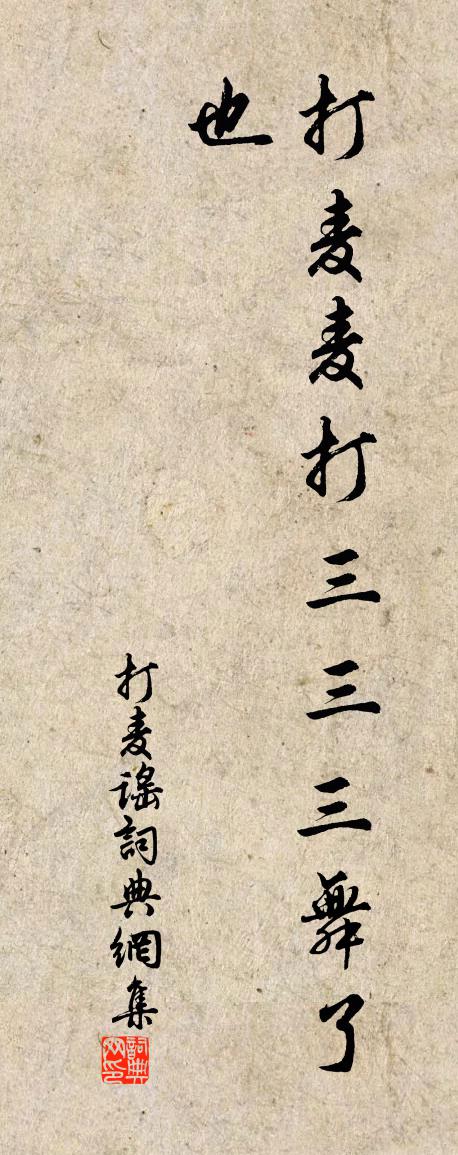 打麦麦打三三三舞了
也
打麦謡詞典網集
詞典
网印